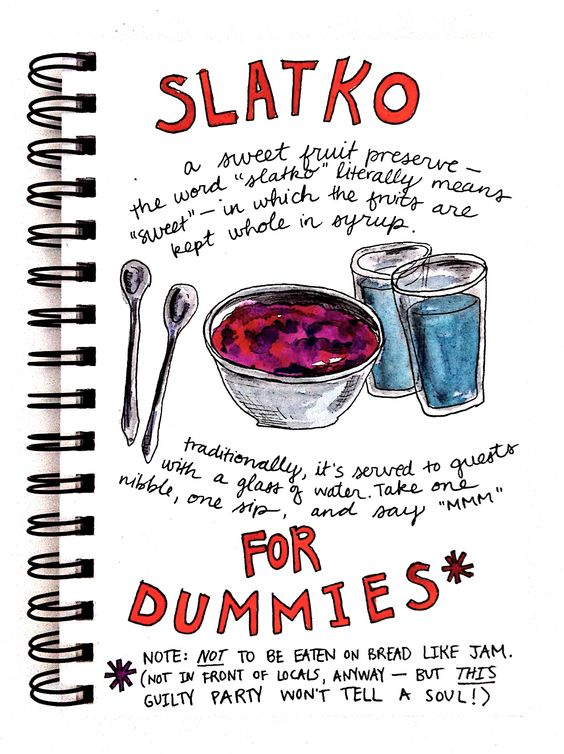 SLATKO
a sweet fruit preserve –
the word "slatko" literally means
"sweet" – in which the fruits are
kept whole in syrup.
traditionally, it's served to guests
with a glass of water. Take one
nibble, one sip, and say "MMM"
FOR
DUMMIES*
* NOTE: NOT TO BE EATEN ON BREAD LIKE JAM.
(NOT IN FRONT OF LOCALS, ANYWAY – BUT THIS
GUILTY PARTY WON'T TELL A SOUL!)